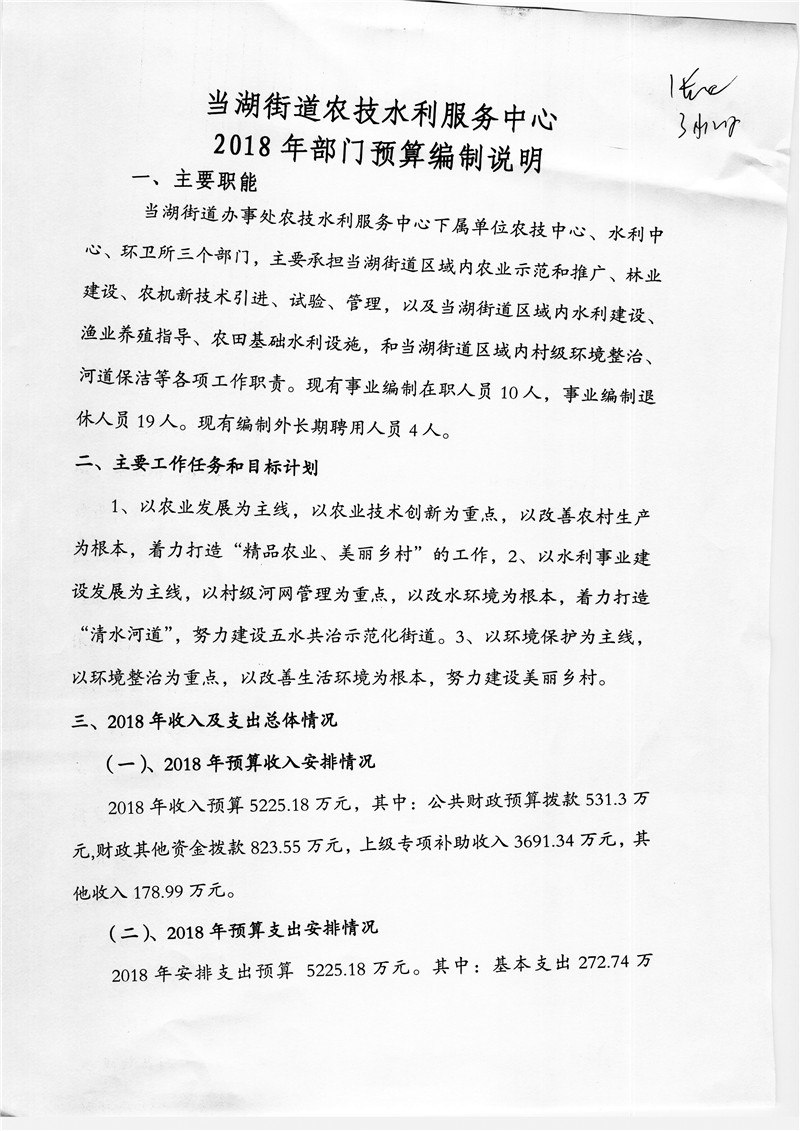 当湖街道农技水利服务中心
2018年部门预算编制说明
一、主要职能
当湖街道办事处农技水利服务中心下属单位农技中心、水利中
心、环卫所三个部门，主要承担当湖街道区域内农业示范和推广、林业
建设、农机新技术引进、试验、管理，以及当湖街道区域内水利建设、
渔业养殖指导、农田基础水利设施，和当湖街道区域内村级环境整治、
河道保洁等各项工作职责。现有事业编制在职人员10人，事业编制退
休人员19人。现有编制外长期聘用人员4人。
二、主要工作任务和目标计划
1、以农业发展为主线，以农业技术创新为重点，以改善农村生产
为根本，着力打造“精品农业、美丽乡村”的工作，2、以水利事业建
设发展为主线，以村级河网管理为重点，以改水环境为根本，着力打造
“清水河道”，努力建设五水共治示范化街道。3、以环境保护为主线，
以环境整治为重点，以改善生活环境为根本，努力建设美丽乡村。
三、2018年收入及支出总体情况
（一）、2018年预算收入安排情况
2018年收入预算5225.18万元，其中：公共财政预算拨款531.3万
元,财政其他资金拨款823.55万元，上级专项补助收入3691.34万元，其
他收入178.99万元。
（二）、2018年预算支出安排情况
2018年安排支出预算 5225.18万元。其中：基本支出272.74万